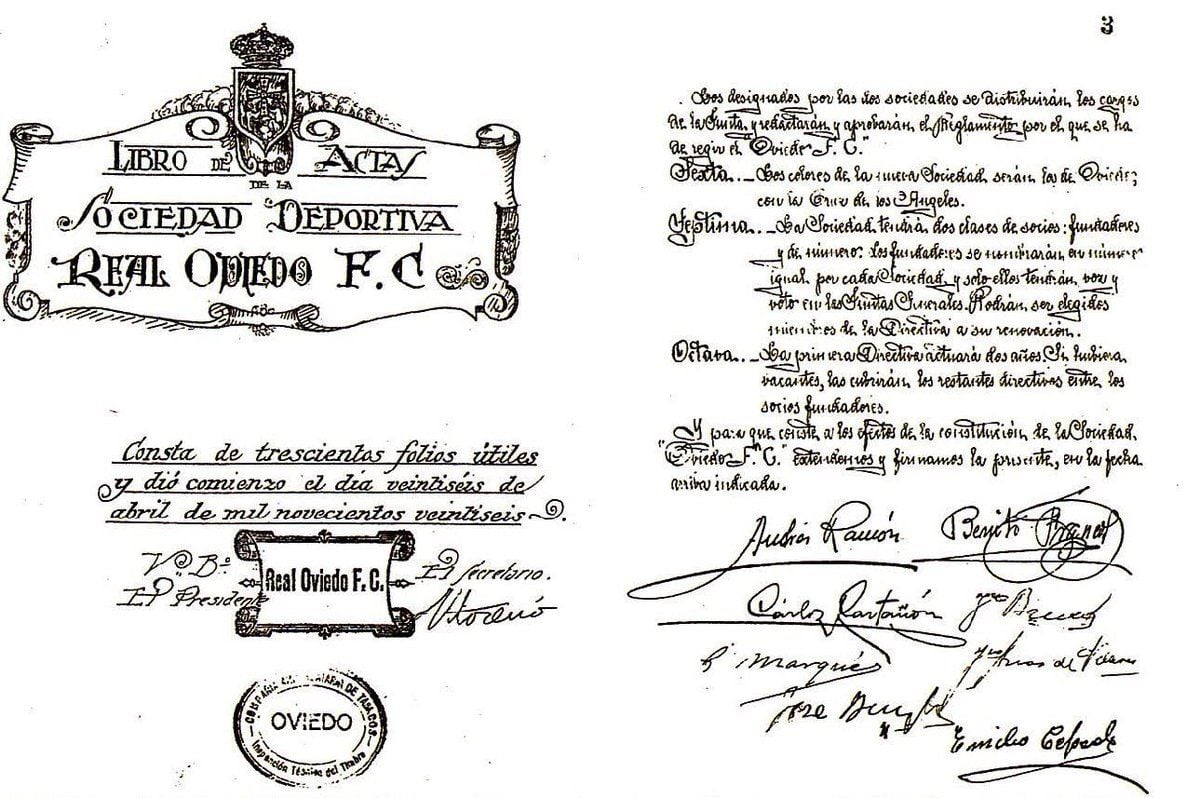 LIBRO DE ACTAS
DE LA
SOCIEDAD DEPORTIVA
REAL OVIEDO F.C
Consta de trescientos folios útiles
y dió comienzo el día veintiséis de
abril de mil novecientos veintiseis.
Vº Bº
El Presidente
Real Oviedo F.C.
El Secretario.
OVIEDO
Inspección Técnica del Timbre
3
Los designados por las dos sociedades se distribuirán los cargos
de la Junta y redactarán y aprobarán el Reglamento por el que se ha
de regir el "Oviedo F.C."
Sexta.- Los colores de la nueva Sociedad serán los de Oviedo,
con la Cruz de los Angeles.
Septima.- La Sociedad tendrá dos clases de socios: fundadores
y de número. Los fundadores se nombrarán en número
igual por cada Sociedad y solo ellos tendrán voz y
voto en las Juntas Generales. Podrán ser elegidos
miembros de la Directiva a su renovación.
Octava.- La primera Directiva actuará dos años. Si hubiera
vacantes, las cubrirán los restantes directivos entre los
socios fundadores.
Y para que conste a los efectos de la constitución de la Sociedad
"Oviedo F.C." extendemos y firmamos la presente, en la fecha
arriba indicada.
Andrés Ramón Benito
Cárlos
Marqués
José
Emilio